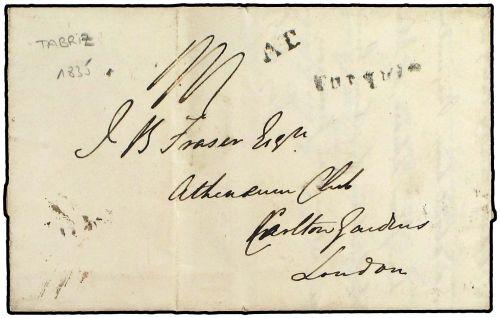 TABRIZ
1835
AE
Turquie
J B Fraser Esqr
Athenaeum Club
Carlton Gardens
London